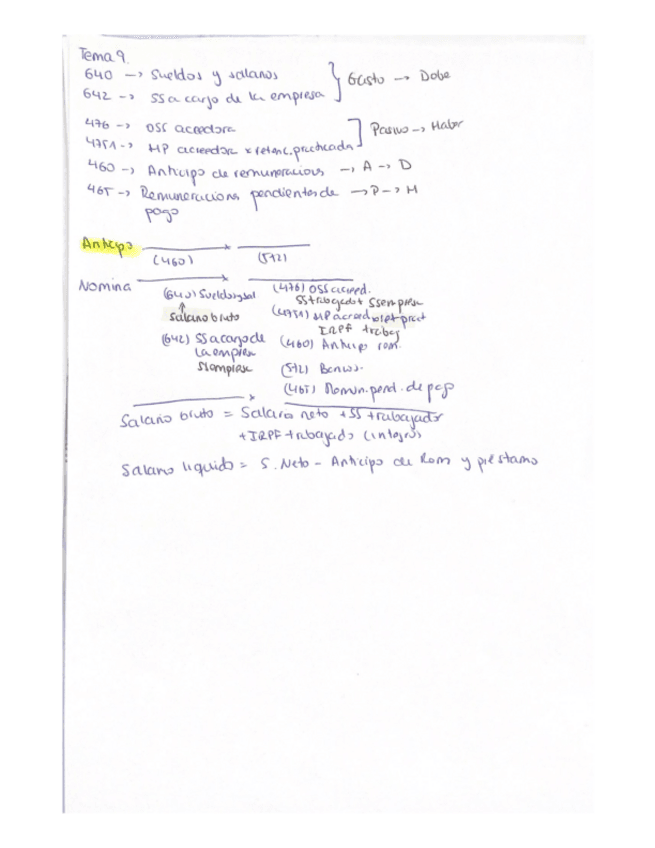 Tema 9.
640 -> Sueldos y salarios
642 -> SS a cargo de la empresa
} Gasto -> Debe
476 -> OSS acreedora
4751 -> HP acreedora x retenc. practicada
] Pasivo -> Haber
460 -> Anticipo de remuneracions -> A -> D
465 -> Remuneracions pendientes de -> P -> H
pago
Anticipo
(460) (572)
Nomina
(640) Sueldos y sal (476) OSS acreed.
SS trabajad + SS empresa
salario bruto (4751) HP acreed x ret pract
IRPF trabaj
(642) SS a cargo de (460) Anticip rem.
la empresa
SS empresa (572) Bancos.
(465) Remun. pend. de pago
Salario bruto = Salario neto + SS trabajador
+ IRPF trabajado (integro)
Salario liquido = S. Neto - Anticipo de Rem y préstamo